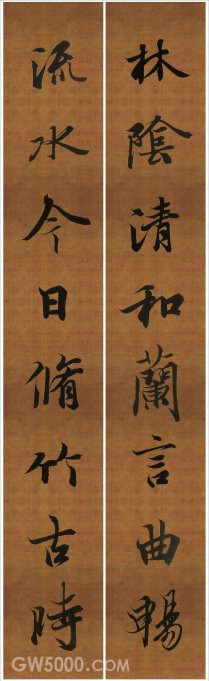 林陰清和蘭言曲暢
流水今日脩竹古時
GW5000.COM